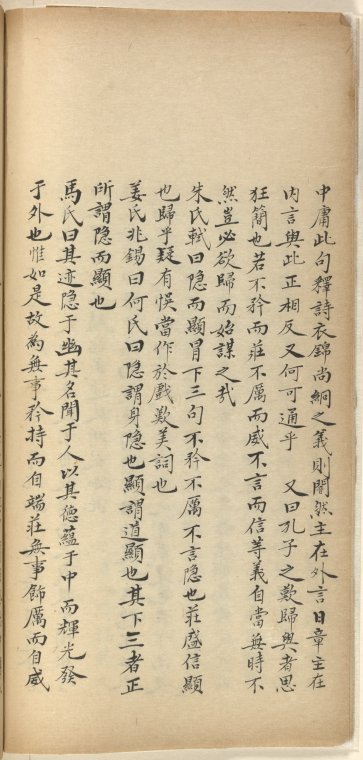 中庸此句釋詩衣錦尚絅之義則闇然主在外言日章主在
内言與此正相反又何可通乎　又曰孔子之歎歸與者思
狂簡也若不矜而莊不厲而威不言而信等義自當無時不
然豈必欲歸而始謀之哉
朱氏軾曰隐而顯冒下三句不矜不厲不言隐也莊威信顯
也歸乎疑有悞當作於戲歎美詞也
姜氏兆錫曰何氏曰隐謂身隐也顯謂道顯也其下三者正
所謂隐而顯也
馬氏曰其迹隐于幽其名聞于人以其德蘊于中而輝光發
于外也惟如是故為無事矜持而自端莊無事飾厲而自威